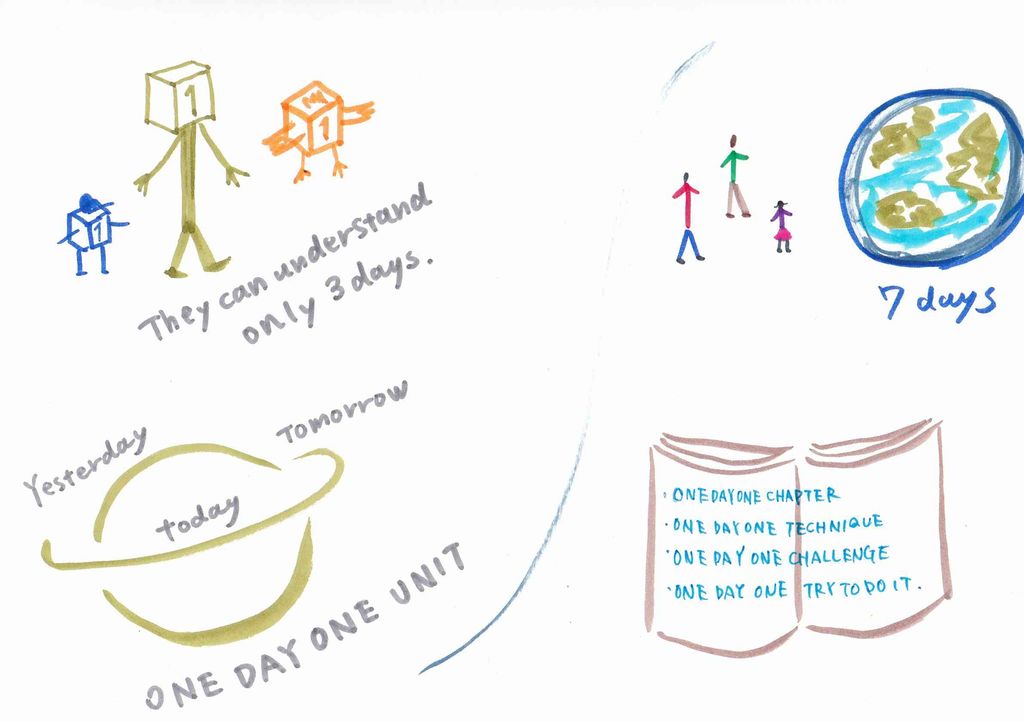 1
1
1
They can understand
only 3 days.
7 days
Yesterday
Tomorrow
today
ONE DAY ONE UNIT
・ONE DAY ONE CHAPTER
・ONE DAY ONE TECHNIQUE
・ONE DAY ONE CHALLENGE
・ONE DAY ONE TRY TO DO IT.